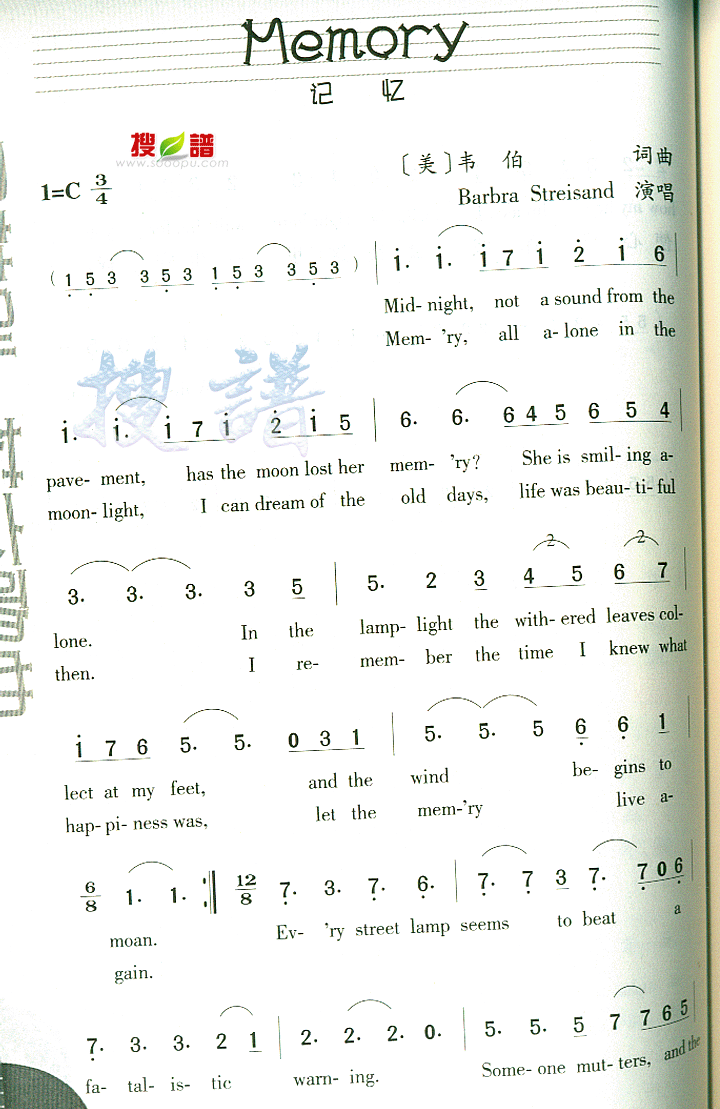 Memory
记 忆
搜谱
www.sooopu.com
〔美〕韦 伯 词曲
1=C 3/4
Barbra Streisand 演唱
( 1 5 3 3 5 3 1 5 3 3 5 3 ) | i. i. i 7 i 2 i 6 |
Mid- night, not a sound from the
Mem- 'ry, all a- lone in the
搜谱
i. i. i 7 i 2 i 5 | 6. 6. 6 4 5 6 5 4 |
pave- ment, has the moon lost her mem- 'ry? She is smil- ing a-
moon- light, I can dream of the old days, life was beau- ti- ful
3. 3. 3. 3 5 | 5. 2 3 4 5 6 7 |
lone. In the lamp- light the with- ered leaves col-
then. I re- mem- ber the time I knew what
i 7 6 5. 5. 0 3 1 | 5. 5. 5 6 6 1 |
lect at my feet, and the wind be- gins to
hap- pi- ness was, let the mem-'ry live a-
6/8 1. 1. :‖ 12/8 7. 3. 7. 6. | 7. 7 3 7. 7 0 6 |
moan. Ev- 'ry street lamp seems to beat a
gain.
7. 3. 3. 2 1 | 2. 2. 2. 0. | 5. 5. 5 7 7 6 5 |
fa- tal- is- tic warn- ing. Some- one mut- ters, and the